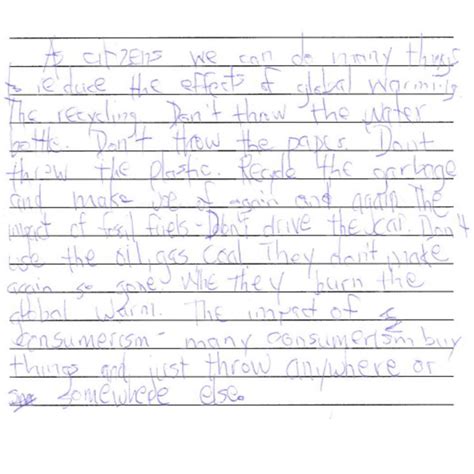 As citizens we can do many things
to reduce the effects of global warming.
The recycling. Don't throw the water
bottle. Don't throw the paper. Dont
throw the plastic. Recycle the garbage
and make use of again and again The
impact of fossil fuels - Don't drive the car. Don't
use the oil, gas Coal They don't make
again so gone. Whe they burn the
global warm. The impact of
consumerism - many consumerism buy
things and just throw anywhere or
somewhere else.